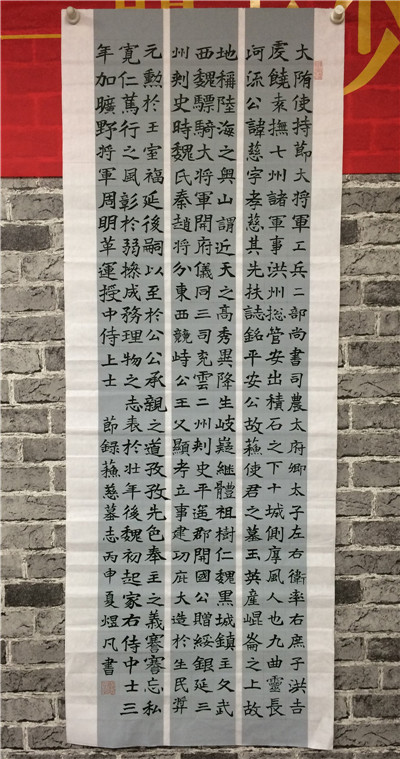 大隋使持節大將軍工兵二部尚書司農太府卿太子左右衛率右庶子洪吉
虔饒袁撫七州諸軍事洪州捴管安出積石之下十城側厚風人也九曲靈長
河派公諱慈字孝慈其先扶誌銘平安公故蘓使君之墓王英產崐崙之上故
地稱陸海之奥山謂近天之高秀異降生岐嶷繼體祖樹仁魏黑城鎮主父武
西魏驃騎大將軍開府儀同三司兖雲二州刾史平遥郡開國公贈綏銀延三
州刾史時魏氏秦趙將分東西競峙公王父顯考立事建功庇大造於生民羿
元勲於王室福延後嗣以至於公公承親之道孜孜先色奉主之義謇謇忘私
寬仁篤行之風彰於弱操成務理物之志表於壯年後魏初起家右侍中士三
年加曠野將軍周明革運授中侍上士 節録蘓慈墓志丙申夏煜凡書